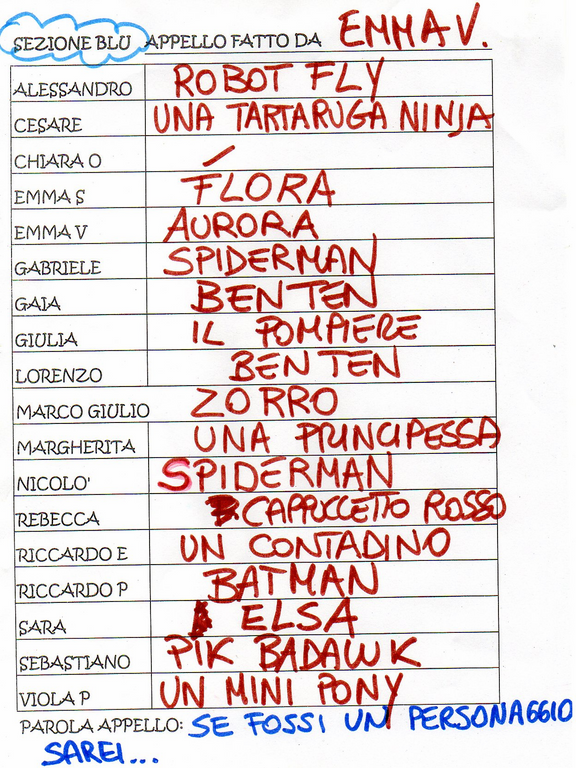 SEZIONE BLU APPELLO FATTO DA EMMA V.
ALESSANDRO ROBOT FLY
CESARE UNA TARTARUGA NINJA
CHIARA O /
EMMA S FLORA
EMMA V AURORA
GABRIELE SPIDERMAN
GAIA BEN TEN
GIULIA IL POMPIERE
LORENZO BEN TEN
MARCO GIULIO ZORRO
MARGHERITA UNA PRINCIPESSA
NICOLO' SPIDERMAN
REBECCA CAPPUCCETTO ROSSO
RICCARDO E UN CONTADINO
RICCARDO P BATMAN
SARA ELSA
SEBASTIANO PIK BADALUK
VIOLA P UN MINI PONY
PAROLA APPELLO: SE FOSSI UN PERSONAGGIO
SAREI...